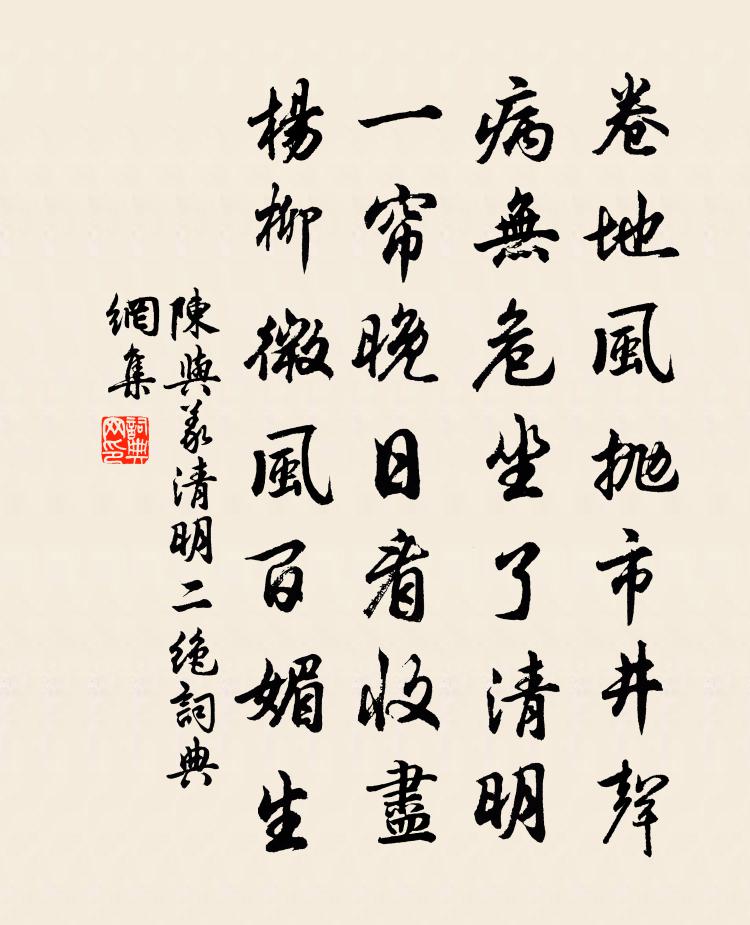 卷地風拋市井聲
病無危坐了清明
一帘晚日看收盡
楊柳微風百媚生
陳與義清明二絶詞典
網集
詞典
网印